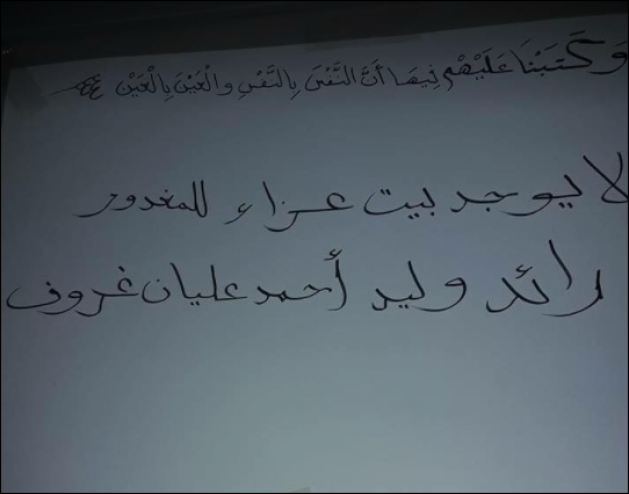 وَكَتَبْنَا عَلَيْهِم فِيهَا أَنَّ النَّفْسَ بِالنَّفْسِ والْعَيْنَ بِالْعَيْنِ
لا يوجد بيت عزاء للمغدور
رائد وليد أحمد عليان غروف